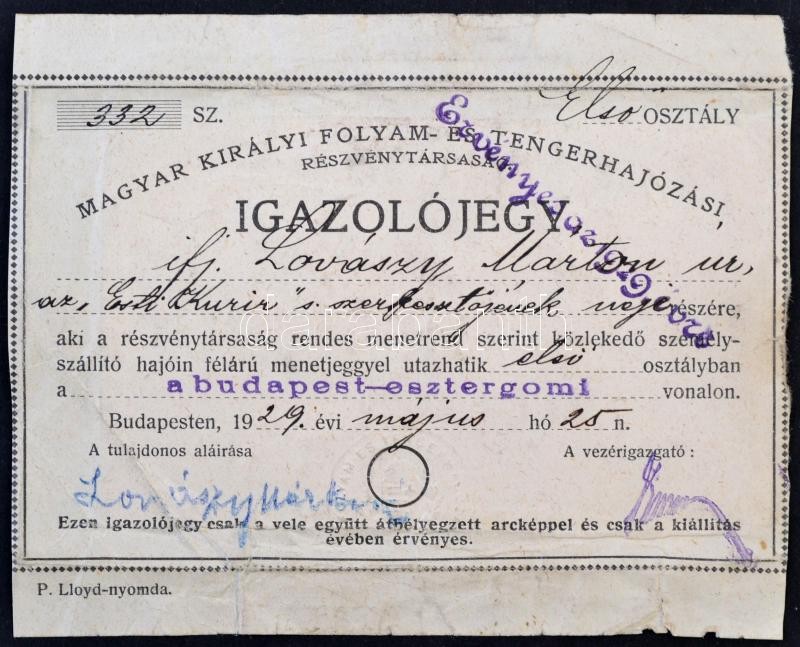 332 SZ. Első OSZTÁLY
MAGYAR KIRÁLYI FOLYAM- ÉS TENGERHAJÓZÁSI
RÉSZVÉNYTÁRSASÁG
IGAZOLÓJEGY,
ifj. Lovászy Márton ur,
az „Esti Kurir" s. szerkesztőjének neje részére,
aki a részvénytársaság rendes menetrend szerint közlekedő személy-
szállító hajóin félárú menetjeggyel utazhatik első osztályban
a budapest–esztergomi vonalon.
Budapesten, 1929. évi május hó 25 n.
A tulajdonos aláírása A vezérigazgató:
Lovászy Márton
Ezen igazolójegy csak a vele együtt áthélyegzett arcképpel és csak a kiállítás
évében érvényes.
P. Lloyd-nyomda.
Érvényes az 192